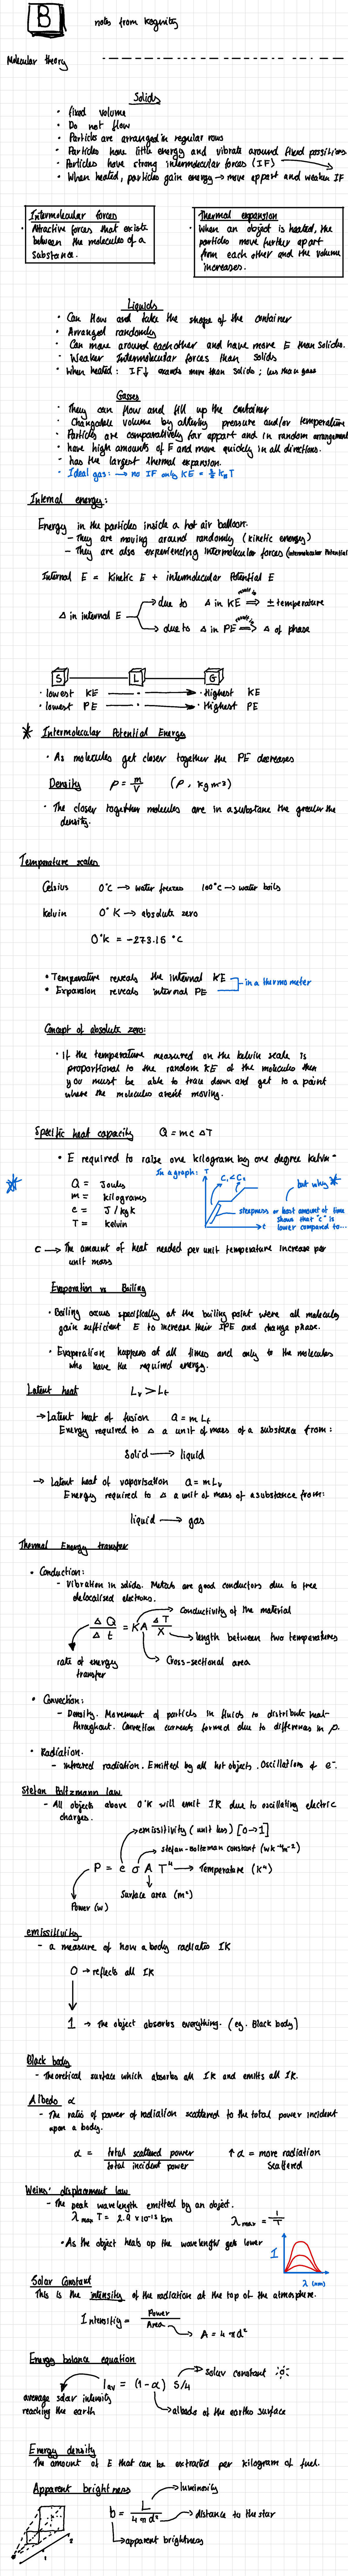 B
notes from Kognity
Molecular theory
Solids
• fixed volume
• Do not flow
• Particles are arranged in regular rows
• Particles have little energy and vibrate around fixed positions
• Particles have strong intermolecular forces (IF)
• When heated, particles gain energy → move appart and weaken IF
Intermolecular forces
• Attractive forces that exists
between the molecules of a
substance.
Thermal expansion
• When an object is heated, the
particles move further apart
form each other and the volume
increases.
Liquids
• Can flow and take the shape of the container
• Arranged randomly
• Can move around eachother and have more E than solids.
• Weaker intermolecular forces than solids
• When heated: IF↓ expands more than solids; less than gass
Gasses
• They can flow and fill up the container
• Changable volume by altering pressure and/or temperature
• Particles are comparatively far appart and in random arrangement
• have high amounts of E and move quickly in all directions.
• has the largest thermal expansion.
• Ideal gas: → no IF only KE = 3/2 k_B T
Internal energy:
Energy in the particles inside a hot air balloon.
- They are moving around randomly (kinetic energy)
- They are also experiencing intermolecular forces (intermolecular Potential
Internal E = Kinetic E + intermolecular Potential E
Δ in internal E
due to Δ in KE ⟹ ± temperature
due to Δ in PE ⟹ Δ of phase
S L G
• lowest KE → • Highest KE
• lowest PE → • Highest PE
* Intermolecular Potential Energy
• As molecules get closer together the PE decreases
Density ρ = m/V (ρ, kg m⁻³)
• The closer together molecules are in a substane the greater the
density.
Temperature scales
Celsius 0°C → water freezes 100°C → water boils
Kelvin 0°K → absolute zero
0°K = -273.15 °C
• Temperature reveals the internal KE
• Expansion reveals internal PE
in a thermometer
Concept of absolute zero:
• If the temperature measured on the kelvin scale is
proportional to the random KE of the molecules then
you must be able to trace down and get to a point
where the molecules arent moving.
Specific heat capacity Q = mc ΔT
• E required to raise one kilogram by one degree kelvin"
In a graph: T
C₁ < C₂
but why *
steepness or least amount of time
shows that "c" is
lower compared to...
t
Q = Joules
m = kilograms
c = J / kg k
T = kelvin
C → The amount of heat needed per unit temperature increase per
unit mass
Evaporation vs Boiling
• Boiling occurs specifically at the boiling point were all molecules
gain sufficient E to increase their IPE and change phase.
• Evaporation happens at all times and only to the molecules
who have the required energy.
Latent heat Lv > Lf
→ Latent heat of fusion Q = m Lf
Energy required to Δ a unit of mass of a substance from:
solid → liquid
→ Latent heat of vaporisation Q = m Lv
Energy required to Δ a unit of mass of a substance from:
liquid → gas
Thermal Energy transfer
• Conduction:
- Vibration in solids. Metals are good conductors due to free
delocalised electrons.
Conductivity of the material
ΔQ/Δt = KA ΔT/X
length between two temperatures
rate of energy
transfer
Cross-sectional area
• Convection:
- Density. Movement of particles in fluids to distribute heat
throughout. Convection currents formed due to differences in ρ.
• Radiation.
- infrared radiation. Emitted by all hot objects. Oscillations of e⁻.
Stefan Boltzmann law
- All objects above 0°K will emit IR due to oscillating electric
charges.
emissitivity (unit less) [0→1]
Stefan-Boltzman constant (W k⁻⁴ m⁻²)
P = e σ A T⁴ → Temperature (K°)
Surface area (m²)
Power (W)
emissitivity
- a measure of how a body radiates IR
0 → reflects all IR
1 → The object absorbs everything. (eg. Black body)
Black body
- Theoretical surface which absorbs all IR and emitts all IR.
Albedo α
- The ratio of power of radiation scattered to the total power incident
upon a body.
α = total scattered power / total incident power
↑α = more radiation
scattered
Weins' displacement law
- The peak wavelength emitted by an object.
λmax T = 2.9 × 10⁻³ km
λmax = 1/T
• As the object heats up the wavelength gets lower
I
λ (nm)
Solar Constant
This is the intensity of the radiation at the top of the atmosphere.
Intensitiy = Power/Area
A = 4πd²
Energy balance equation
solar constant
Iav = (1-α) S/4
average solar intensity
reaching the earth
albedo of the earths surface
Energy density
The amount of E that can be extracted per kilogram of fuel.
Apparent brightness
luminosity
b = L/4πd²
distance to the star
apparent brightness
1
2